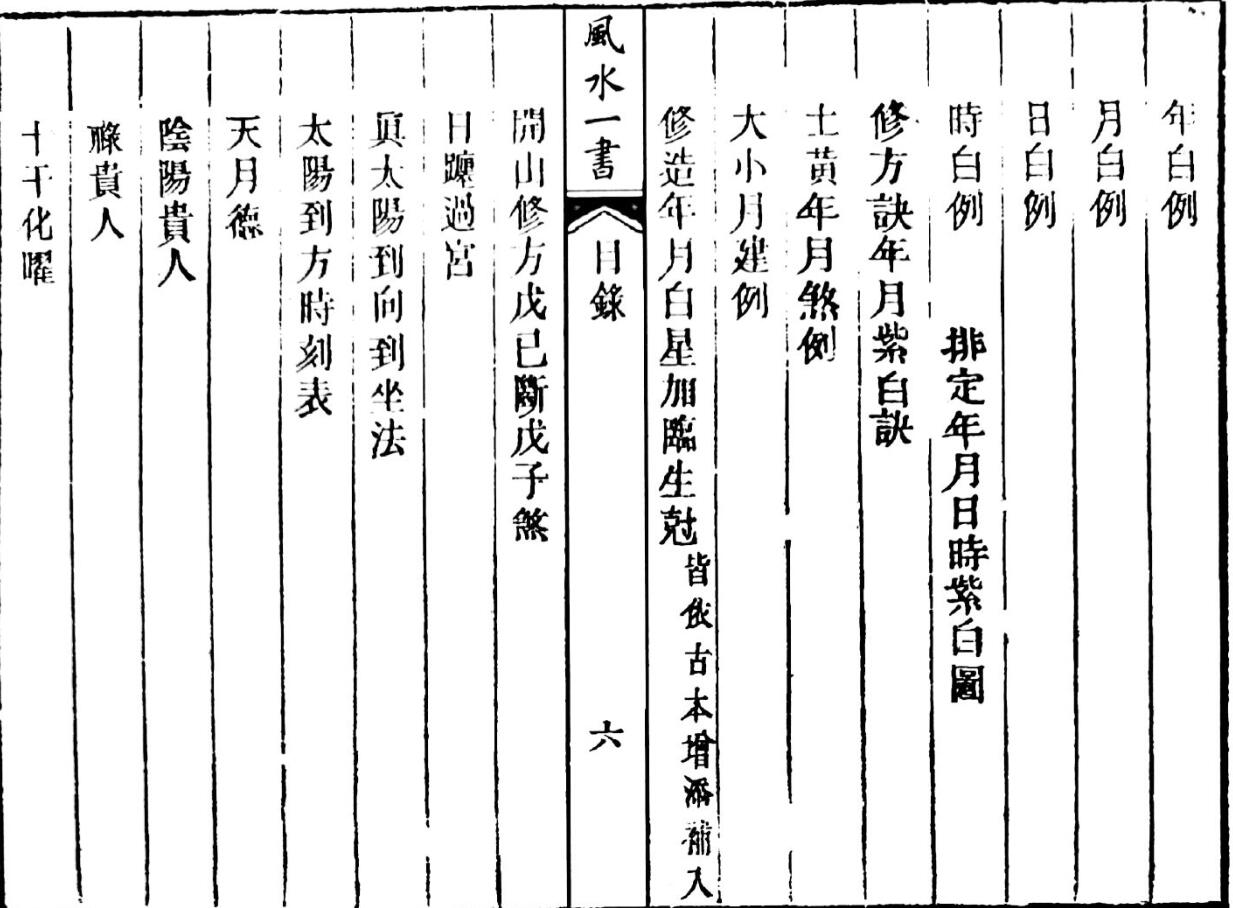 年白例
月白例
日白例
時白例　排定年月日時紫白圖
修方訣年月紫白訣
土黃年月煞例
大小月建例
修造年月白星加臨生尅 皆依古本增添補入
風水一書 目錄 六
開山修方戊已斷戊子煞
日躔過宮
眞太陽到向到坐法
太陽到方時刻表
天月德
陰陽貴人
祿貴人
十干化曜